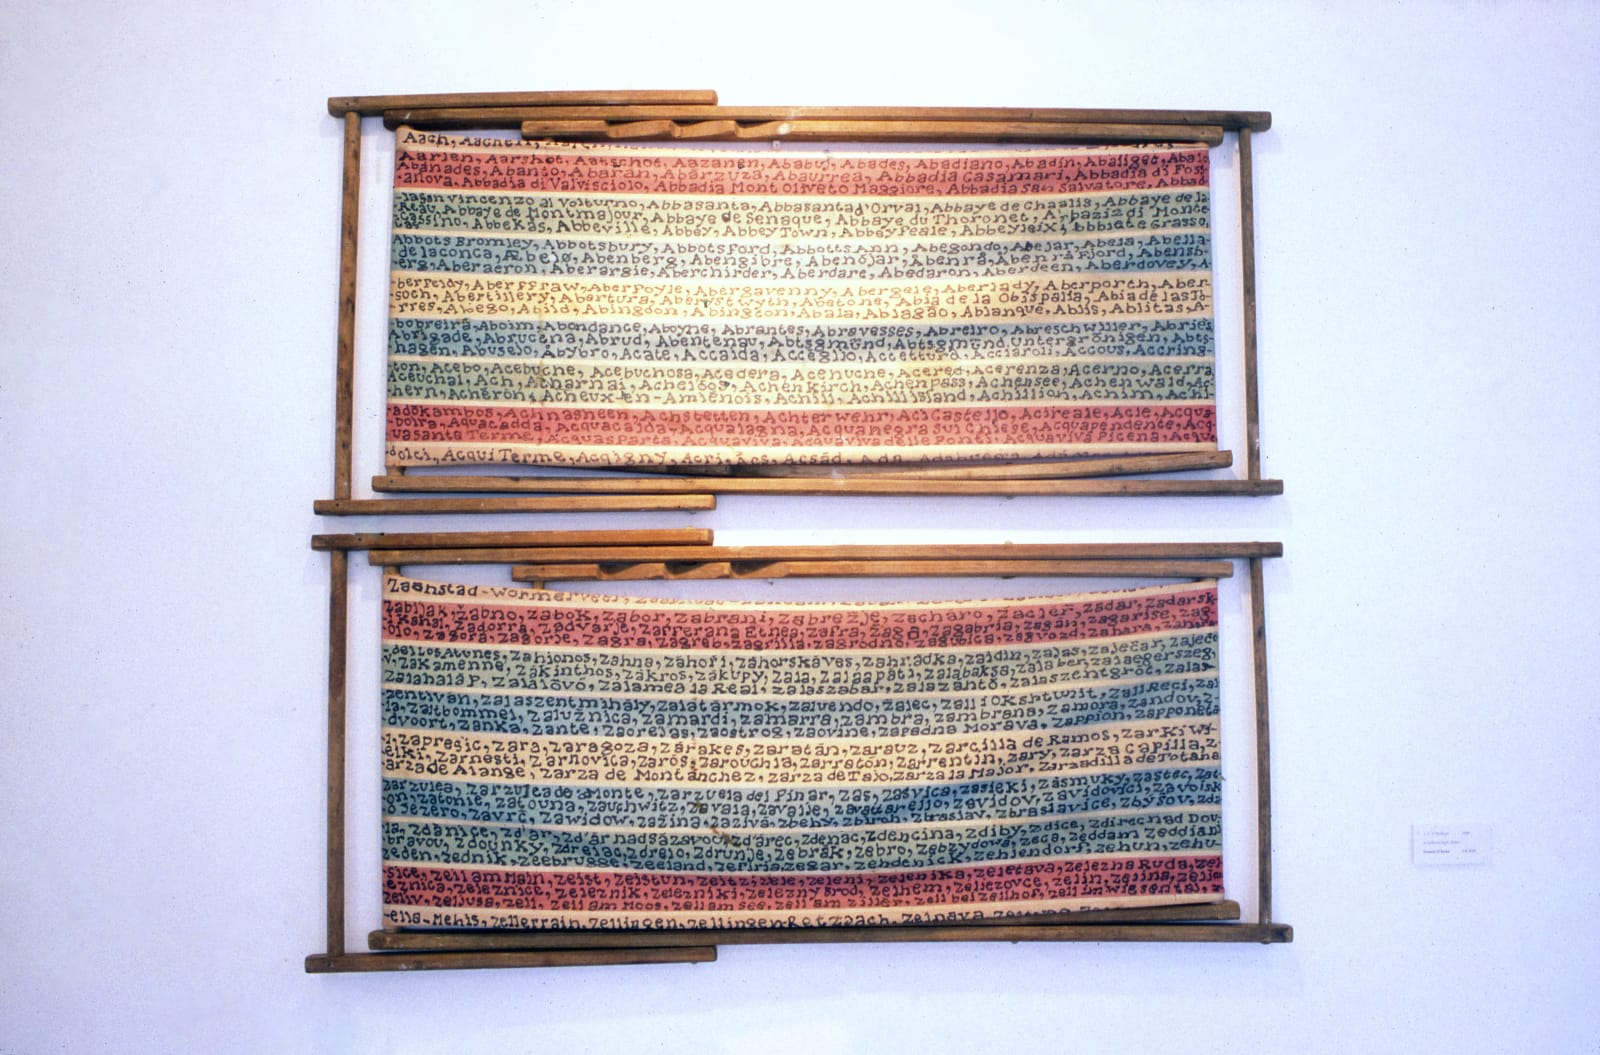 Aach, Aachen,
Aarlen, Aarshot, Aatschot, Aazanen, Ababuj, Abades, Abadiano, Abadin, Abaliget, Aba
Abanades, Abanto, Abaran, Abarzuza, Abaurrea, Abbadia Casamari, Abbadia di Fos-
-anova, Abbadia di Valvisciolo, Abbadia Mont Oliveto Maggiore, Abbadia San Salvatore, Abbad-
San Vincenzo al Volturno, Abbasanta, Abbasanta d'Orval, Abbaye de Chaalis, Abbaye de la
-Reau, Abbaye de Montmajour, Abbaye de Senaque, Abbaye du Thoronet, di Monte
Cassino, Abbekas, Abbeville, Abbey, Abbey Town, Abbeyfeale, Abbeyleix, Abbiate Grasso,
Abbots Bromley, Abbotsbury, Abbotsford, Abbotts Ann, Abegondo, Abejar, Abela, Abella-
de la conca, Æbelø, Abenberg, Abengibre, Abenójar, Åbenrå, Åbenrå Fjord, Abensb-
erg, Aberaeron, Aberargie, Aberchirder, Aberdare, Abedaron, Aberdeen, Aberdovey, A-
berfeldy, Aberffraw, Aberfoyle, Abergavenny, Abergele, Aberlady, Aberporch, Aber-
soch, Abertillery, Abertura, Aberystwyth, Abetone, Abia de la Obispalia, Abia de las To-
rres, Abiego, Abild, Abingdon, Abington, Abala, Ablagão, Ablanque, Ablis, Ablitas, A-
bobreira, Aboim, Abondance, Aboyne, Abrantes, Abravesses, Abreiro, Abreschwiller, Abries
Abrigade, Abrucena, Abrud, Abentenau, Abtsgmünd, Abtsgmünd Untergröningen, Abts-
hagen, Abusejo, Åbybro, Acate, Accaida, Acceglio, Accettura, Acciaroli, Accous, Accring-
ton, Acebo, Acebuche, Acebuchosa, Acedera, Acehuche, Acered, Acerenza, Acerno, Acerra
Aceuchal, Ach, Acharnai, Acheloos, Achenkirch, Achenpass, Achensee, Achenwald, Ac-
hern, Acheron, Acheux-en-Amienois, Achill, Achill Island, Achillion, Achim, Achl
adokambos, Achnasheen, Achstetten, Achterwehr, Aci Castello, Acireale, Acle, Acqua-
boira, Aquacadda, Acquacalda, Acqualagna, Acquanegra sul Chiese, Acquapendente, Acq-
uasanta Terme, Acquasparta, Acquaviva, Acquaviva delle Fonti, Acquaviva Picena, Acqu
-dolci, Acqui Terme, Acquigny, Acri, Acs, Acsád, Ada,
Zaanstad-Wormerveer,
Zabljak, Žabno, Zabok, Zabor, Zabrani, Zabrežje, Zacharo, Zacler, Zadar, Zadarsk-
i Kanal, Zadorra, Zadvarje, Zafferana Etnea, Zafra, Zaga, Zagabria, Zagan, Zagarise, Zag-
Zagora, Zagorje, Zagra, Zagreb, Zagrilla, Zagrodno, Zagvozd, Zahara,
de los Atunes, Zahionos, Zahna, Záhoří, Záhorská Ves, Zahrádka, Zaidin, Zaječar, Zaječo
v, Zákamenné, Zákinthos, Zákros, Zákupy, Zala, Zalaapáti, Zalabaksa, Zalaber, Zalaegerszeg,
Zalahaláp, Zalalövő, Zalamea la Real, Zalaszabar, Zalaszántó, Zalaszentgrót, Zalas-
zentiván, Zalaszentmihály, Zalatárnok, Zalduendo, Zalec, Zall i Okshtunit, Zall Reci, Zal
Zaltbommel, Zalužnica, Zamardi, Zamarra, Zambra, Zambrana, Zamora, Zandov, Z-
dvoort, Zanka, Zante, Zaorejas, Zaostrog, Zaovine, Zapadna Morava, Zappion, Zapponeta
Zapresic, Zara, Zaragoza, Zarakes, Zaratán, Zarauz, Zarcilla de Ramos, Zarki Wi-
elki, Zarnesti, Zarnovica, Zarós, Zarouchla, Zarratón, Zarrentin, Zary, Zarza Capilla, Z-
arza de Alange, Zarza de Montánchez, Zarza de Tajo, Zarza la Major, Zarzadilla de Totana
Zarzulea, Zarzulea de Monte, Zarzuela del Pinar, Zas, Zašvica, Zasieki, Zásmuky, Zastec, Zat-
on, Zatonie, Zatouna, Zauchwitz, Zavala, Zavalje, Zavattarello, Zavidov, Zavidovici, Zavolsk
o Jezero, Zavrč, Zawidow, Zažina, Zaziva, Zbehy, Zbiroh, Zbraslav, Zbraslavice, Zbýšov, Zd-
Zdanice, Zd'ar, Zd'ár nad Sázavou, Zdárec, Zdenac, Zdencina, Zdiby, Zdice, Zdirec nad Dou-
bravou, Zdounky, Zdrelac, Zdrelo, Zdrunje, Zebrák, Zebro, Zebrzydowa, Zeca, Zeddam, Zeddian
Zeden, Zednik, Zeebrugge, Zeeland, Zegar, Zehdenick, Zehlendorf, Zehun, Zehu-
sice, Zeil am Main, Zeist, Zeistun, Zeitz, Zele, Zeleni, Zelenika, Zeletava, Zelezna Ruda, Zel
eznica, Zeleznice, Zeleznik, Zelezniki, Zelezny Brod, Zelhem, Zeliezovce, Zelin, Zelina, Zelju-
Zeliv, Zeljusa, Zell, Zell am Moos, Zell am See, Zell am Ziller, Zell bei Zellhof, Zell im Wiesental, Z
-ella-Mehlis, Zellerrain, Zellingen, Zellingen-Retzbach, Zelnava,